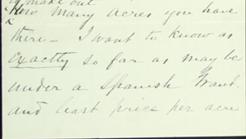 make out
How many acres you have
there - I want to know as
exactly so far as may be
under a Spanish Grant
and least price per acre